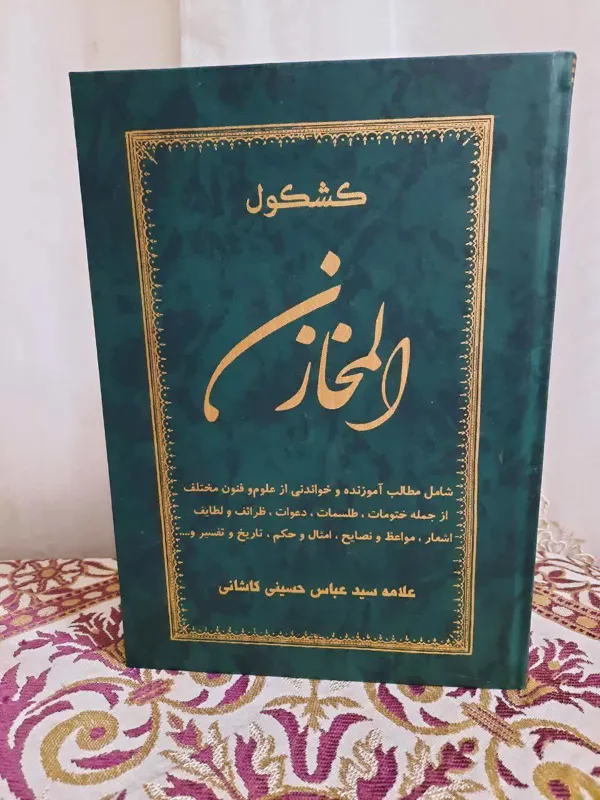 کشکول
المخازن
شامل مطالب آموزنده و خواندنی از علوم و فنون مختلف
از جمله ختومات ، طلسمات ، دعوات ، ظرائف و لطایف
اشعار ، مواعظ و نصایح ، امثال و حکم ، تاریخ و تفسیر و....
علامه سید عباس حسینی کاشانی